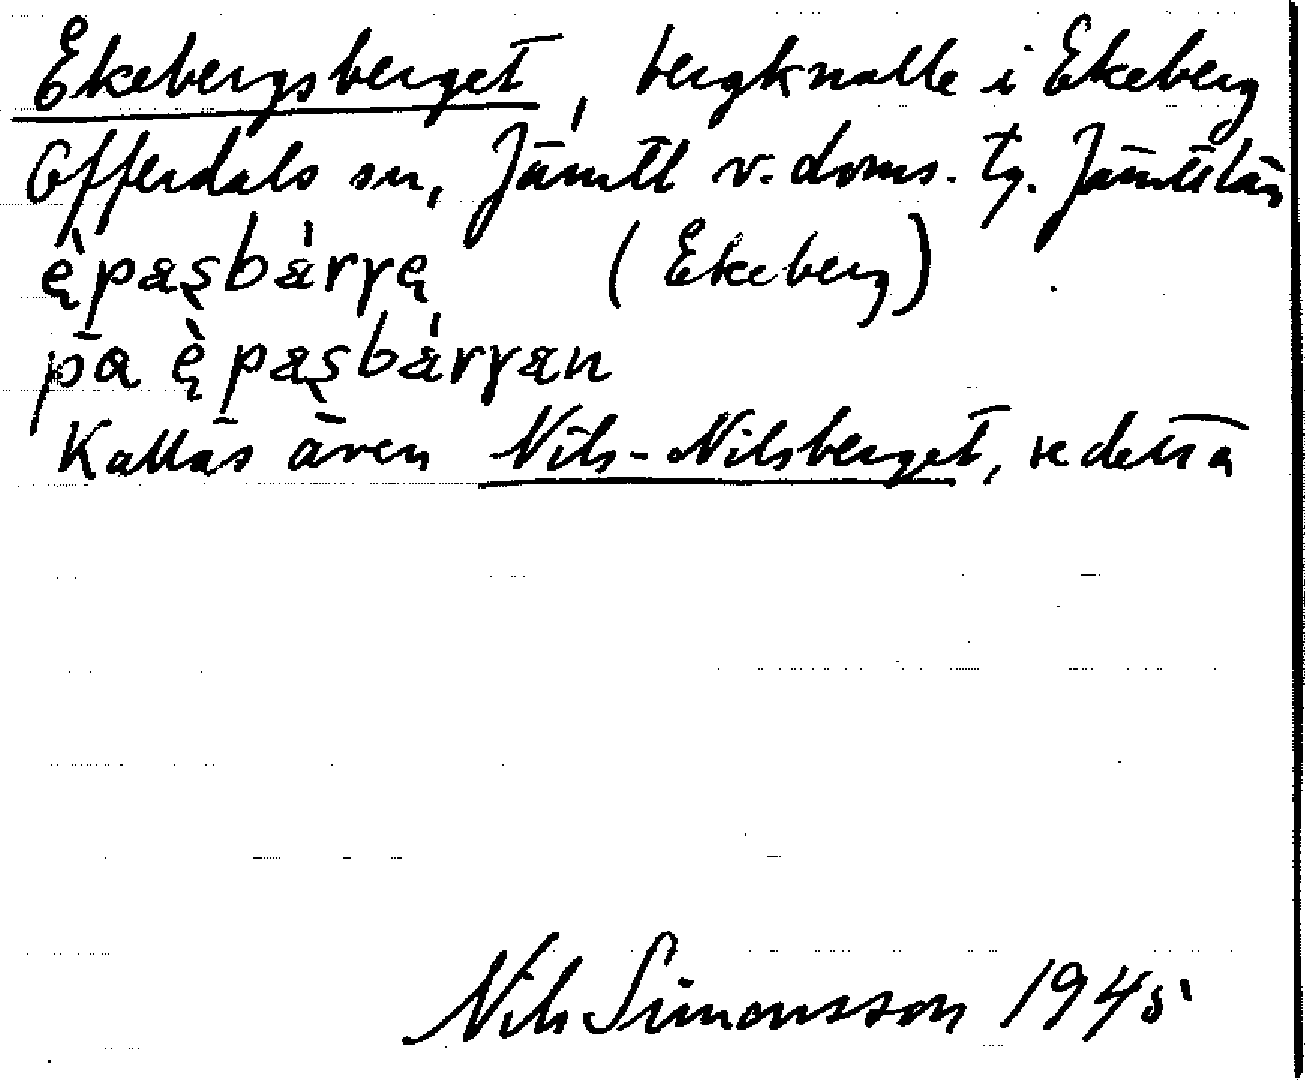 Ekebergsberget, bergknalle i Ekeberg
Offerdals sn, Jämtl v. doms. tg. Jämtl län
(Ekeberg)
på
Kallas även Nils-Nilsberget, se detta
Nils Simonsson 1945